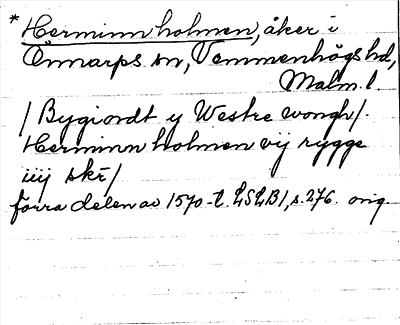 * Herminn holmen, åker i
Önnarps sn, Vemmenhögs hd,
Malm. l.
/ Bygiordt y Westre wongh /.
Herminn holmen vij rygge
iiij skr /
förra delen av 1570-t. LSLB1, s. 276. orig.